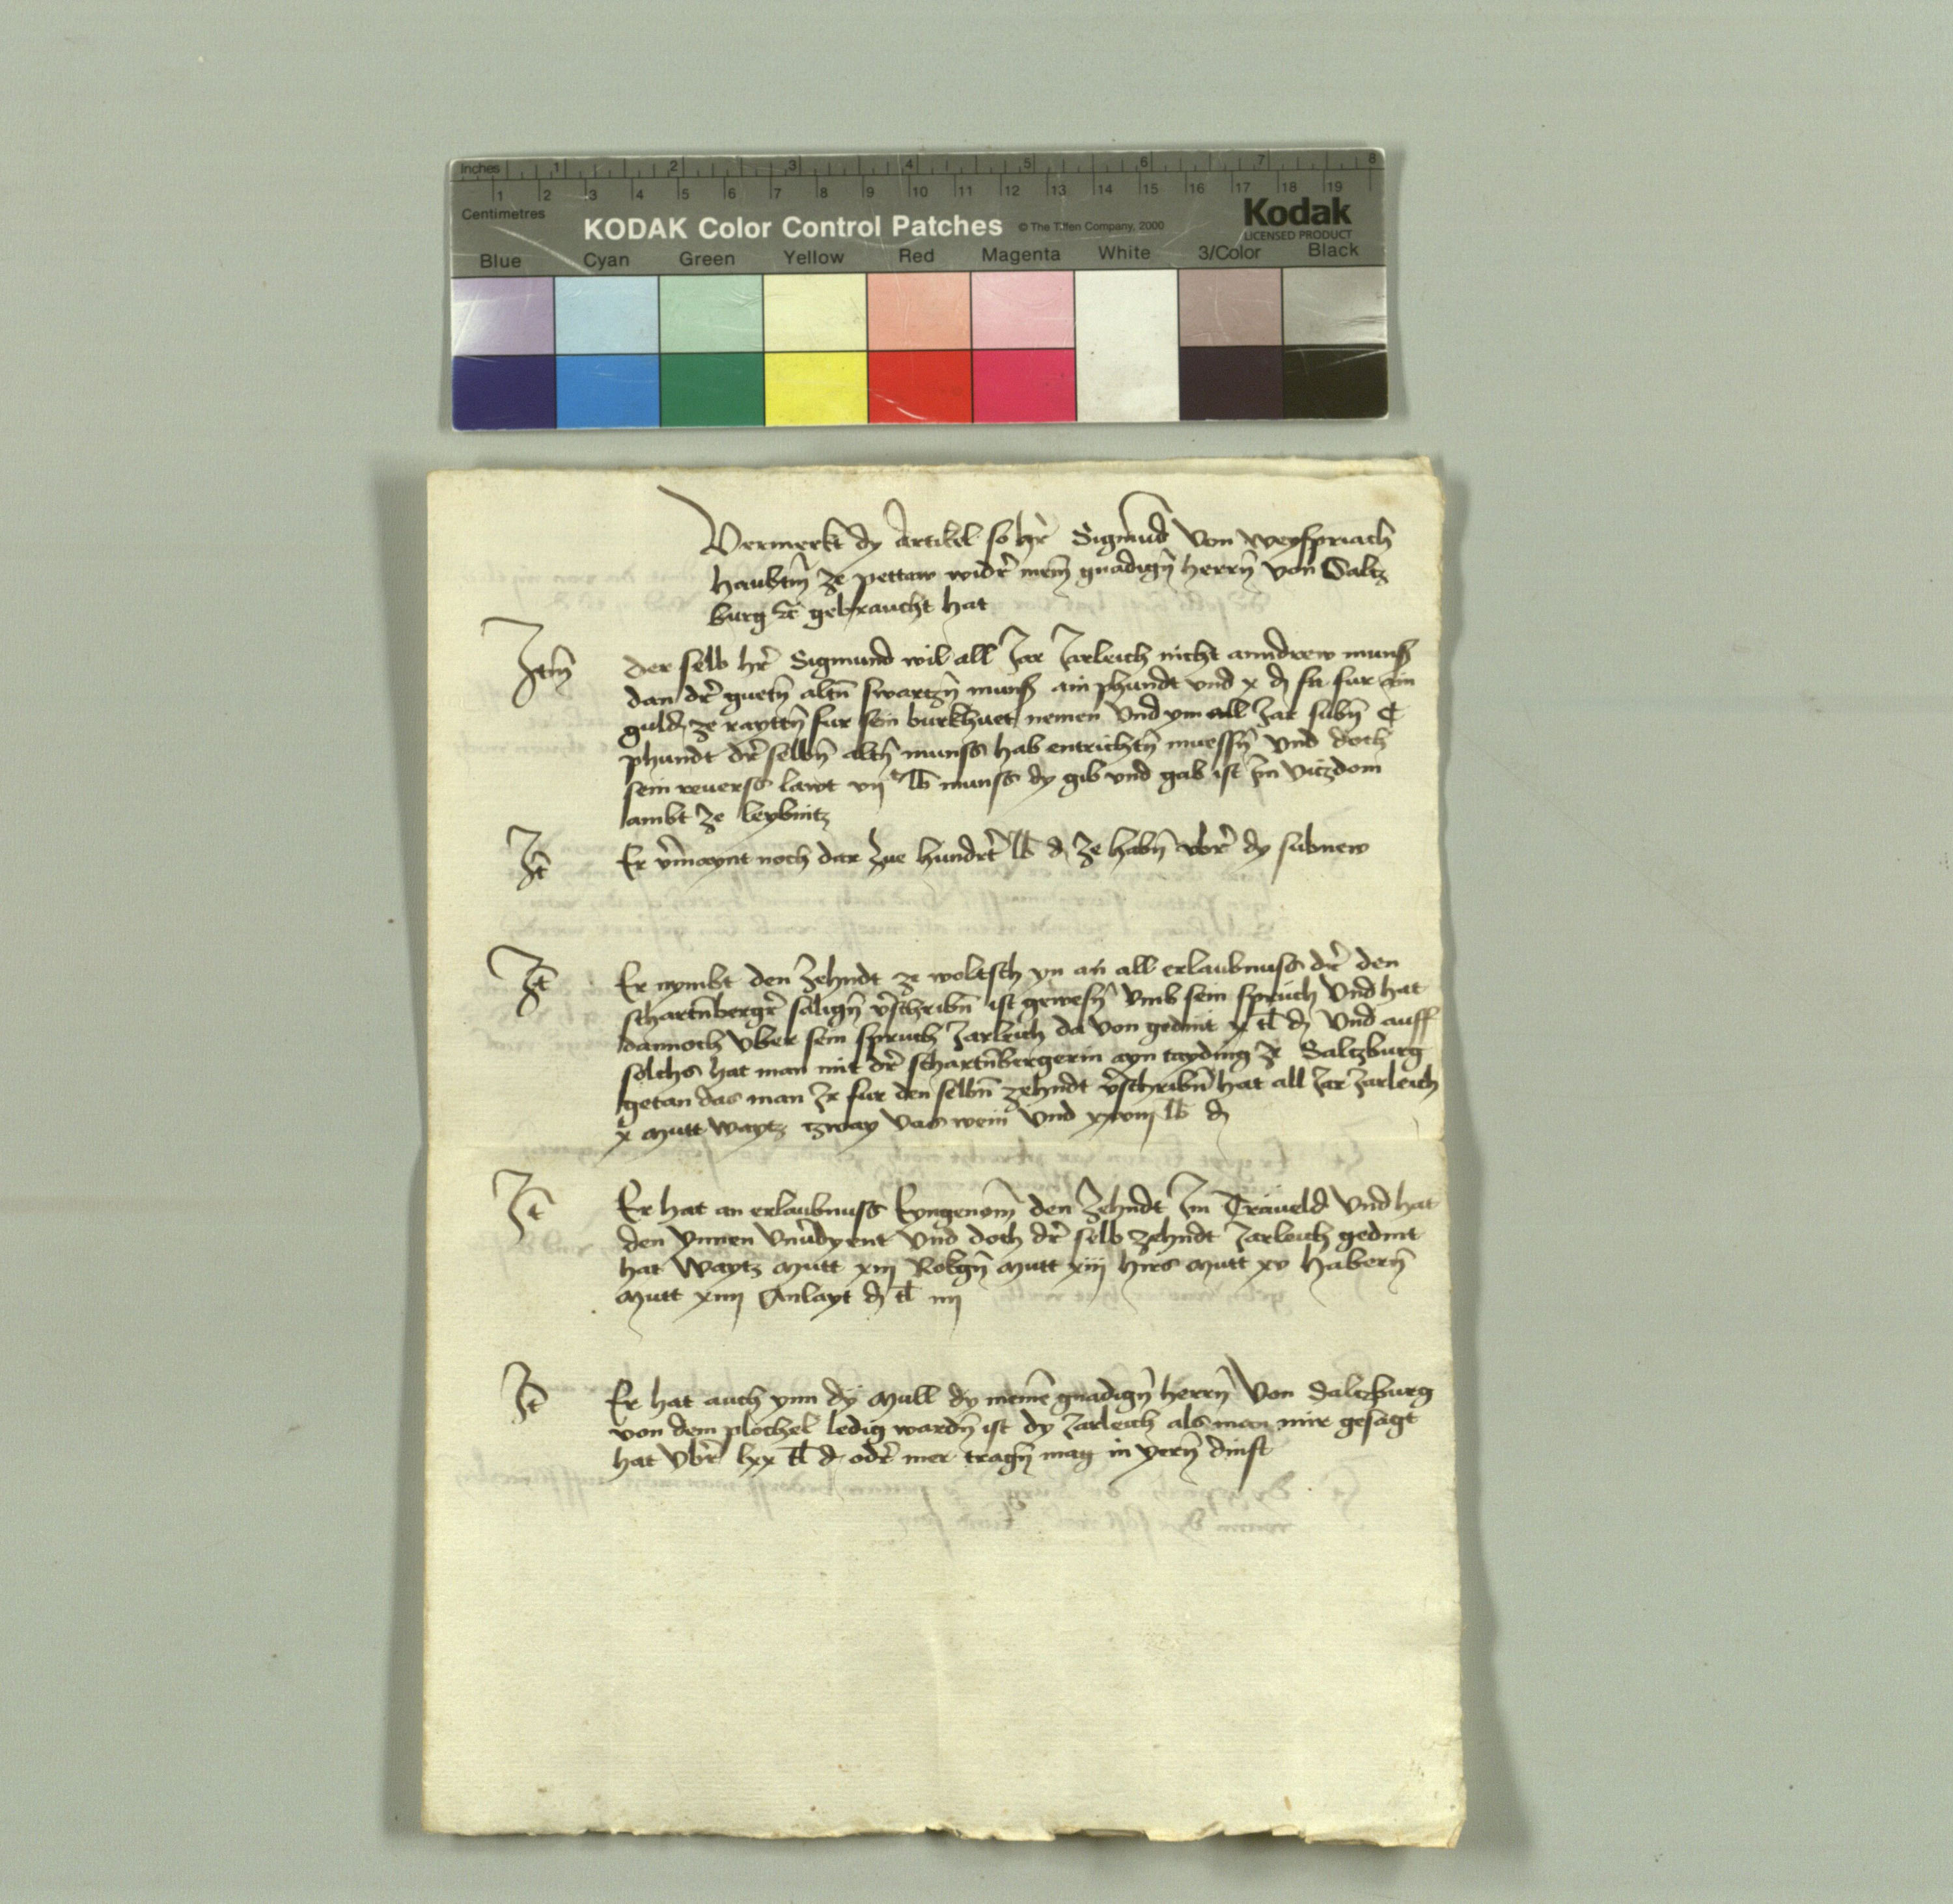 Inches 1 2 3 4 5 6 7 8
1 2 3 4 5 6 7 8 9 10 11 12 13 14 15 16 17 18 19
Centimetres
KODAK Color Control Patches © The Tiffen Company, 2000 Kodak
LICENSED PRODUCT
Blue Cyan Green Yellow Red Magenta White 3/Color Black
Vermerkt dy Artikel so hr̄ Sigmund von weyspriach
haubtm̄ ze pettaw widr̄ mein̄ gnadign̄ herrn̄ von Saltz
burg etc gebraucht hat
Itm̄ der selb hr̄ Sigmund wil all Jar Jarleich nicht anndrew munss
dan dr̄ guetn̄ altn̄ swartzn̄ munss ain phundt und x d fur ain
guld ze raytten̄ fur sein burkhuet nemen und ym all Jar subn̄ C
phundt dr̄ selbn̄ altn̄ munss hab entrichtn̄ muessn̄ und doch
sein reuerss lawt vij C lb munss dy gib und gab ist Im vitzdom
ambt ze leybnitz
It̄ Er v̄maynt noch dar zue hundrt̄ lb d ze habn̄ vbr̄ dy subnew
It̄ Er nymbt den zehndt ze woltsch yn an all erlaubnuss dr̄ den
schartn̄bergr̄ salign̄ v̄schribn̄ ist gewesn̄ umb sein spruch und hat
dannoch vber sein spruch Jarleich da von gedint x tl d und auff
solchs hat man mit dr̄ schartn̄bergerin ayn tayding ze Saltzburg
getan das man Ir fur den selbn̄ zehndt v̄schribn̄ hat all Jar Jarleich
x mutt waytz zway vas wein und xxviij lb d
It̄ Er hat an erlaubnuss Eyngenom̄ den zehndt Im Traueld und hat
den ynnen vnv̄dyent und doch dr̄ selb zehndt Jarleich gedint
hat waytz mutt xiij Rokgn̄ mutt xiij hirs mutt xv habern̄
mutt xiiij Anlayt d tl iiij
It̄ Er hat auch ynn dy mull dy meinē gnadign̄ herrn̄ von Saltzburg
von dem plochel ledig wardn̄ ist dy Jarleich als man mir gesagt
hat vbr̄ lxx tl d odr̄ mer tragn̄ mag in yern̄ dinst